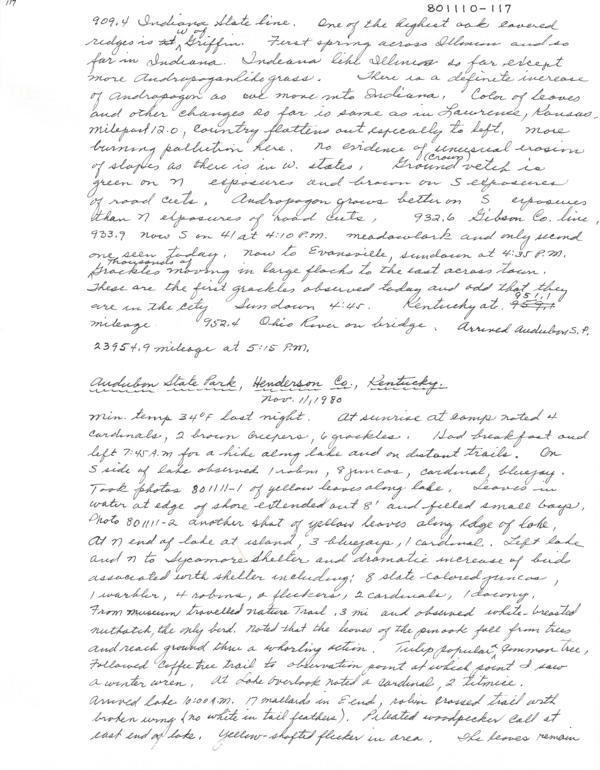 117
801110-117
909.4 Indiana State line. One of the highest oak covered
ridges is W of Griffin. First spring across Illinois and so
far in Indiana. Indiana like Illinois so far except
more Andropogan like grass. There is a definite increase
of Andropogon as we move into Indiana. Color of leaves
and other changes so far is same as in Lawrence, Kansas.
milepost 12.0, country flattens out especially to left. more
burning pollution here. no evidence of unusual erosion
of slopes as there is in W. states, Ground (Crown) vetch is
green on N exposures and brown on S exposures
of road cuts. Andropogon grows better on S exposures
than N exposures of road cuts, 932.6 Gibson Co. line,
933.9 now S on 41 at 4:10 P.M. meadowlark and only second
one seen today. now to Evansville, sundown at 4:35 P.M.
Thousands of
Grackles moving in large flocks to the east across town.
These are the first grackles observed today and odd that they
are in the city Sundown 4:45. Kentucky at 951.1
mileage 952.4 Ohio River on bridge. Arrived Audubon S.P.
23954.9 mileage at 5:15 P.M.
Audubon State Park, Henderson Co., Kentucky.
Nov. 11, 1980
Min. temp 34°F last night. At sunrise at camp noted 4
cardinals, 2 brown creepers, 6 grackles. Had breakfast and
left 7:45 A.M for a hike along lake and on distant trails. On
S side of lake observed 1 robin, 8 juncos, cardinal, bluejay.
Took photos 801111-1 of yellow leaves along lake. Leaves in
water at edge of shore extended out 8' and filled small bays.
Photo 801111-2 another shot of yellow leaves along edge of lake,
At N end of lake at island, 3 bluejays, 1 cardinal. Left lake
and N to Sycamore Shelter and dramatic increase of birds
associated with shelter including: 8 slate-colored juncos,
1 warbler, 4 robins, 2 flickers, 2 cardinals, 1 downy.
From museum travelled nature Trail .3 mi and observed white-breasted
nuthatch, the only bird. Noted that the leaves of the pin oak fall from trees
and reach ground thru a whorling action. Tulip popular a common tree,
Followed Coffee tree trail to observation point at which point I saw
a winter wren. At Lake overlook noted a cardinal, 2 titmice.
Arrived lake 10:00 A.M. 17 mallards in E end, robin crossed trail with
broken wing (no white in tail feathers). Pileated woodpecker call at
east end of lake. Yellow-shafted flicker in area. The leaves remain